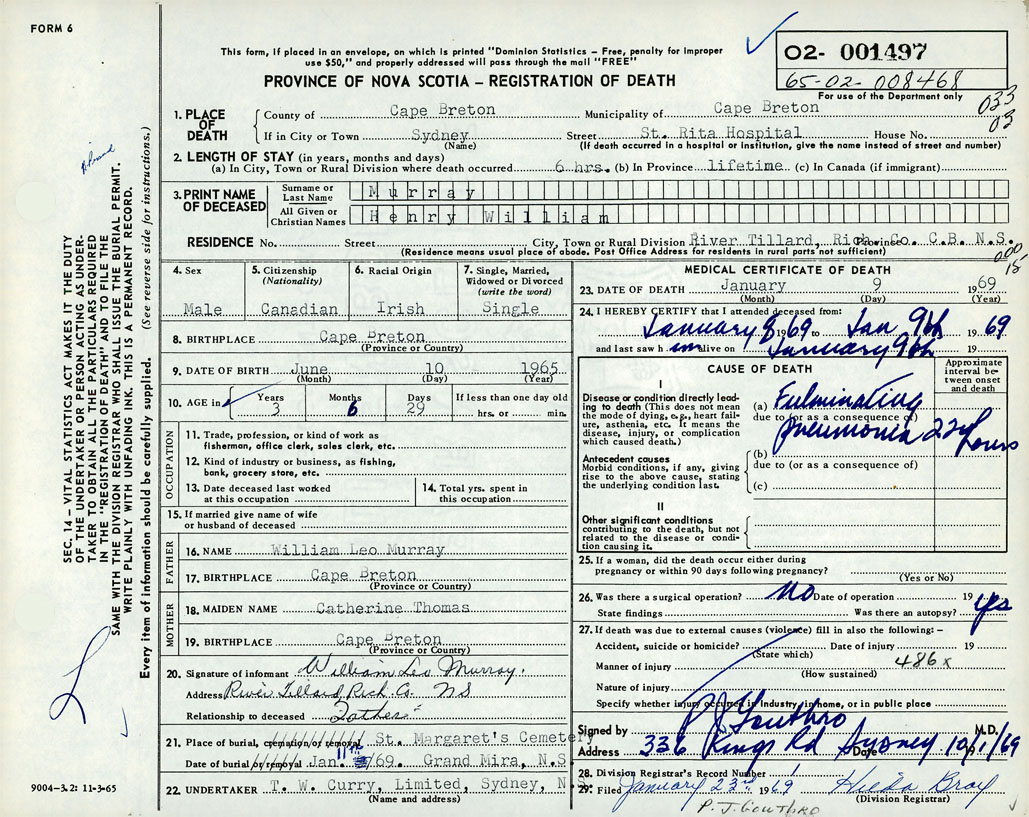 FORM 6
This form, if placed in an envelope, on which is printed "Dominion Statistics – Free, penalty for improper
use $50," and properly addressed will pass through the mail "FREE"
02- 001497
65-02-008468
For use of the Department only
033
03
PROVINCE OF NOVA SCOTIA – REGISTRATION OF DEATH
1. PLACE OF DEATH
County of Cape Breton Municipality of Cape Breton
If in City or Town Sydney Street St. Rita Hospital House No.
(Name) (If death occurred in a hospital or institution, give the name instead of street and number)
2. LENGTH OF STAY (in years, months and days)
(a) In City, Town or Rural Division where death occurred 6 hrs. (b) In Province lifetime (c) In Canada (if immigrant)
3. PRINT NAME OF DECEASED
Surname or Last Name Murray
All Given or Christian Names Henry William
RESIDENCE No. Street City, Town or Rural Division River Tillard, Rich. Co. Province C.B. N.S.
(Residence means usual place of abode. Post Office Address for residents in rural parts not sufficient)
000
15
4. Sex
Male
5. Citizenship
(Nationality)
Canadian
6. Racial Origin
Irish
7. Single, Married,
Widowed or Divorced
(write the word)
Single
8. BIRTHPLACE Cape Breton
(Province or Country)
9. DATE OF BIRTH June 10 1965
(Month) (Day) (Year)
10. AGE in Years Months Days If less than one day old
3 6 29 hrs. or min.
OCCUPATION
11. Trade, profession, or kind of work as
fisherman, office clerk, sales clerk, etc.
12. Kind of industry or business, as fishing,
bank, grocery store, etc.
13. Date deceased last worked
at this occupation
14. Total yrs. spent in
this occupation
15. If married give name of wife
or husband of deceased
FATHER
16. NAME William Leo Murray
17. BIRTHPLACE Cape Breton
(Province or Country)
MOTHER
18. MAIDEN NAME Catherine Thomas
19. BIRTHPLACE Cape Breton
(Province or Country)
20. Signature of informant William Leo Murray.
Address River Tillard, Rich. Co. NS
Relationship to deceased Father
21. Place of burial, cremation/or removal St. Margaret's Cemetery
Date of burial/or removal Jan. 11th /69. Grand Mira, N.S.
22. UNDERTAKER T. W. Curry, Limited, Sydney, N.S.
(Name and address)
MEDICAL CERTIFICATE OF DEATH
23. DATE OF DEATH January 9 1969
(Month) (Day) (Year)
24. I HEREBY CERTIFY that I attended deceased from:
January 8 1969 to Jan 9th 1969
and last saw h im alive on January 9th 19
CAUSE OF DEATH
Approximate
interval be-
tween onset
and death
I
Disease or condition directly lead-
ing to death (This does not mean
the mode of dying, e.g., heart fail-
ure, asthenia, etc. It means the
disease, injury, or complication
which caused death.)
(a) Fulminating
due to (or as a consequence of)
Pneumonia 22 hours
Antecedent causes
Morbid conditions, if any, giving
rise to the above cause, stating
the underlying condition last.
(b)
due to (or as a consequence of)
(c)
II
Other significant conditions
contributing to the death, but not
related to the disease or condi-
tion causing it.
25. If a woman, did the death occur either during
pregnancy or within 90 days following pregnancy?
(Yes or No)
26. Was there a surgical operation? No Date of operation 19
State findings Was there an autopsy? yes
27. If death was due to external causes (violence) fill in also the following: –
Accident, suicide or homicide? Date of injury 19
(State which)
Manner of injury 486x
(How sustained)
Nature of injury
Specify whether injury occurred in industry, in home, or in public place
Signed by PJ Gouthro M.D.
Address 336 Kings Rd Sydney Date 10/1/69
28. Division Registrar's Record Number 1
29. Filed January 23rd 1969 Hilda Bray
(Division Registrar)
P. J. GOUTHRO
SEC. 14 – VITAL STATISTICS ACT MAKES IT THE DUTY
OF THE UNDERTAKER OR PERSON ACTING AS UNDER-
TAKER TO OBTAIN ALL THE PARTICULARS REQUIRED
IN THE "REGISTRATION OF DEATH" AND TO FILE THE
SAME WITH THE DIVISION REGISTRAR WHO SHALL ISSUE THE BURIAL PERMIT.
WRITE PLAINLY WITH UNFADING INK. THIS IS A PERMANENT RECORD.
Every item of information should be carefully supplied. (See reverse side for instructions.)
9004-3.2: 11-3-65